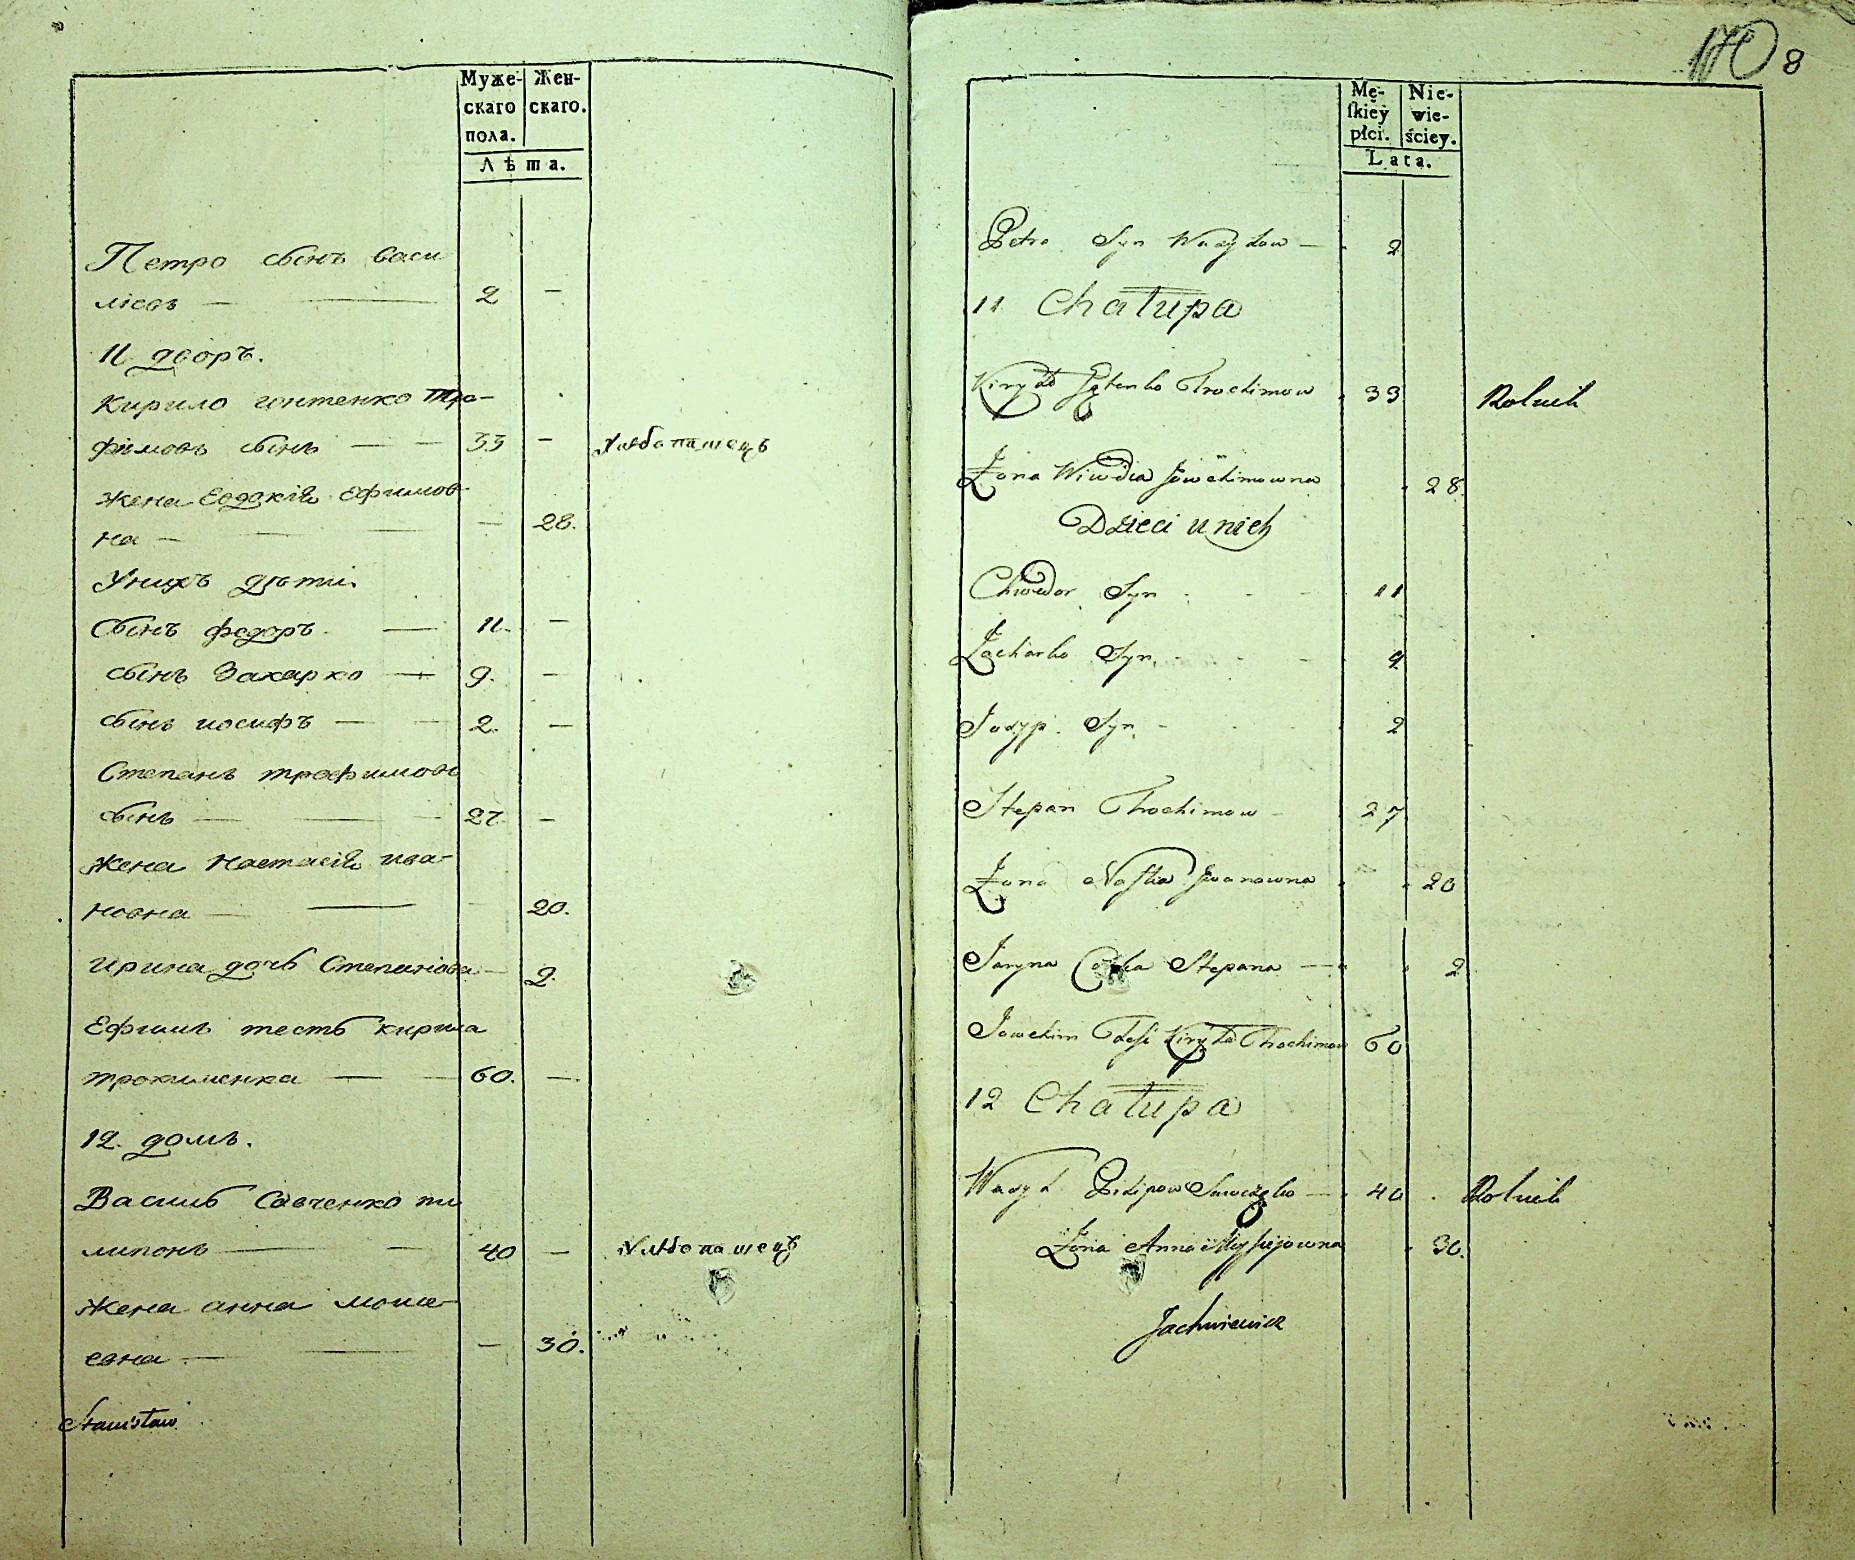 Муже- Жен-
скаго скаго.
пола.
Лѣта.
Петро сынъ васи
лісвъ — 2 —
11 дворъ.
Кирило гонтенко Тро-
фимовъ сынъ — — 33 — Хлѣбопашецъ
жена Евдокія Ефимов
на — — 28.
Унихъ дѣти.
Сынъ федоръ — 11. —
сынъ Захарко — 9. —
сынъ иосифъ — 2. —
Степанъ трофимовъ
сынъ — 27 —
жена Настасія ива-
новна — 20.
ирина дочь Степанова — 2.
Ефимъ тесть кирила
трохименка — 60. —
12. домъ.
Василь Савченко пи
липовъ — 40 — Хлѣбопашецъ
жена анна моисе-
евна — — 30.
Stanisław
170 8
Mę- Nie-
skiey wie-
płci. ściey.
Lata.
Petro Syn Wasylow — 2
11 Chałupa
Kiryło Trochimow 33 Rolnik
Żona Jowchimowna 28
Dzieci u nich
Chwedor Syn 11
Zacharko Syn 9
Josyp Syn 2
Stepan Trochimow 27
Żona Nastia Iwanowna 20
Jaryna Corka Stepana — 2
Jowchim Teść Kiryła Trochimow 60
12 Chałupa
Wasyl Pilipow Sawczenko — 40 Rolnik
Żona Anna Mojsiejowna 30.
Jachniewicz